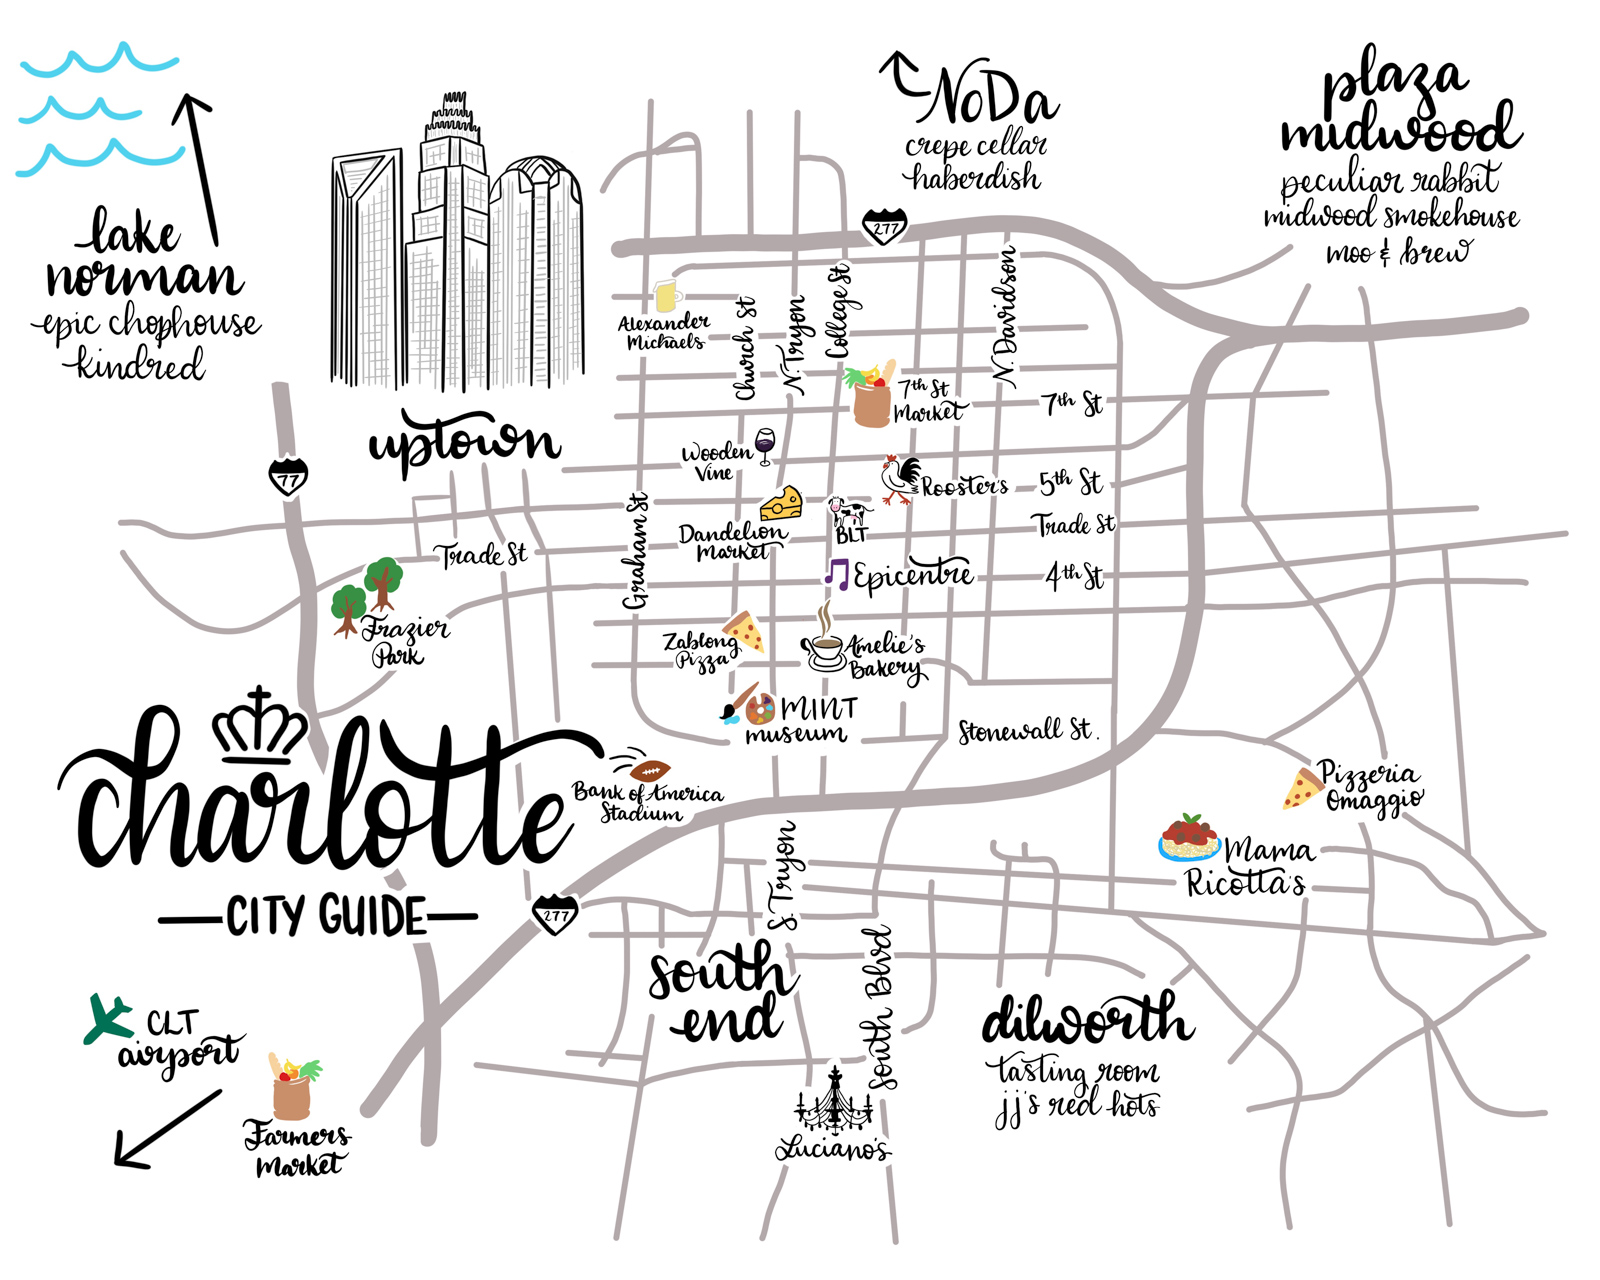 lake
norman
epic chophouse
kindred
NoDa
crepe cellar
haberdish
plaza
midwood
peculiar rabbit
midwood smokehouse
moo & brew
277
Alexander
Michaels
Church St
N. Tryon
College St
N. Davidson
7th St
Market
7th St
uptown
77
Wooden
Vine
Rooster's
5th St
Graham St
Dandelion
Market
BLT
Trade St
Trade St
Epicentre
4th St
Frazier
Park
Zablong
Pizza
Amelie's
Bakery
MINT
museum
Stonewall St.
charlotte
CITY GUIDE
Bank of America
Stadium
Pizzeria
Omaggio
Mama
Ricotta's
277
S. Tryon
South Blvd
south
end
dilworth
tasting room
jj's red hots
CLT
airport
Farmers
Market
Luciano's